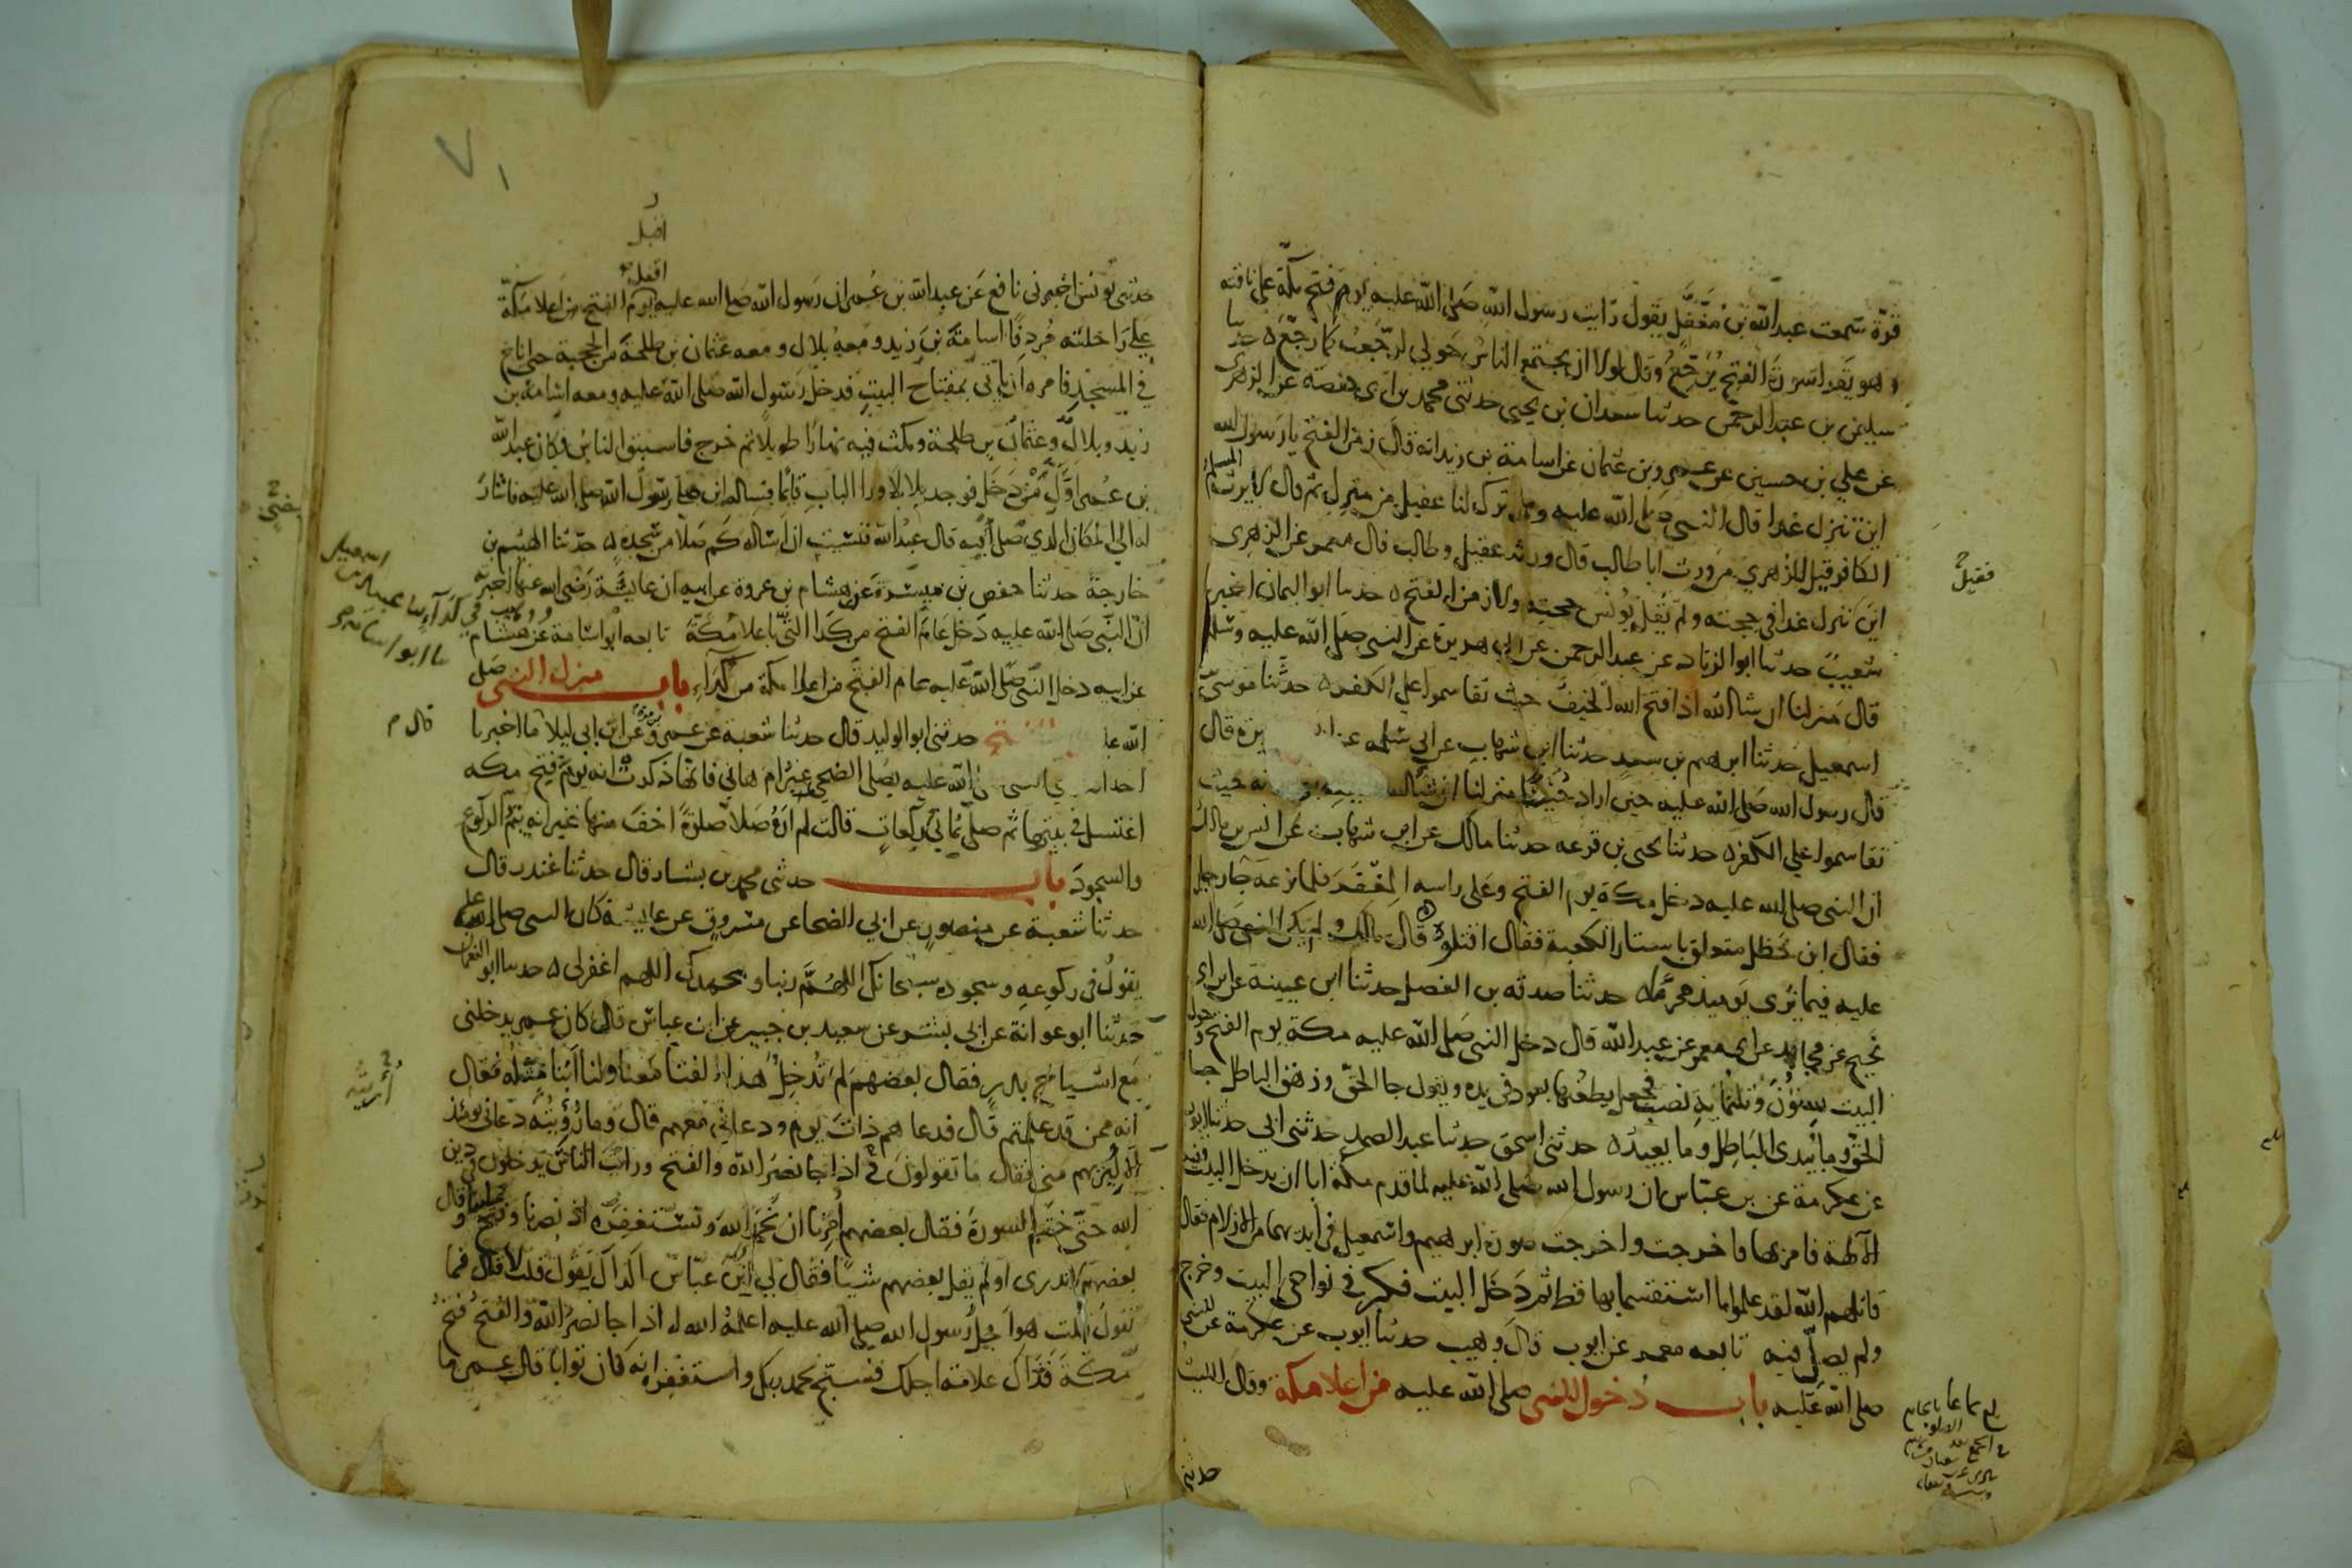 قرة سمعت عبد الله بن مغفل يقول رايت رسول الله صلى الله عليه يوم فتح مكة على ناقته
وهو يقرا سورة الفتح يرجع وقال لولا ان يجتمع الناس حولي لرجعت كما رجع ه حدثنا
سليمن بن عبد الرحمن حدثنا سعدان بن يحيى حدثني محمد بن ابي حفصة عن الزهري
عن علي بن حسين عن عمرو بن عثمان عن اسامة بن زيد انه قال زمن الفتح يا رسول الله
اين تنزل غدا قال النبي صلى الله عليه وهل ترك لنا عقيل من منزل ثم قال لا يرث المسلم
الكافر قيل للزهري من ورث ابا طالب قال ورثه عقيل وطالب قال معمر عن الزهري
اين تنزل غدا في حجته ولم يقل يونس حجته ولا زمن الفتح ه حدثنا ابو اليمان اخبرنا
شعيب حدثنا ابو الزناد عن عبد الرحمن عن ابي هريرة عن النبي صلى الله عليه وسلم
قال منزلنا ان شا الله اذا فتح الله الخيف حيث تقاسموا على الكفر ه حدثنا موسى بن
اسمعيل حدثنا ابرهيم بن سعد حدثنا ابن شهاب عن ابي سلمه عن يرة قال
قال رسول الله صلى الله عليه حين اراد حنينا منزلنا ان شا الله حيث
تقاسموا على الكفر ه حدثنا يحيى بن قزعه حدثنا مالك عن ابن شهاب عن انس بن مالك
ان النبي صلى الله عليه دخل مكة يوم الفتح وعلى راسه المغفر فلما نزعه جا رجل
فقال ابن خطل متعلق باستار الكعبة فقال اقتلوه قال مالك ولم يكن النبي صلى الله
عليه فيما نرى يوميذ محرما ه حدثنا صدقه بن الفضل حدثنا ابن عيينة عن ابن ابي
نجيح عن مجاهد عن ابي معمر عن عبد الله قال دخل النبي صلى الله عليه مكة يوم الفتح وحول
البيت ستون وثلثماية نصب فجعل يطعنها بعود في يده ويقول جا الحق وزهق الباطل جا
الحق وما يبدى الباطل وما يعيد ه حدثني اسحق حدثنا عبد الصمد حدثني ابي حدثنا ايوب
عن عكرمة عن بن عباس ان رسول الله صلى الله عليه لما قدم مكة ابا ان يدخل البيت وفيه
الالهة فامر بها فاخرجت واخرجت صورة ابرهيم واسمعيل في ايديهما من الازلام فقال
قاتلهم الله لقد علموا ما استقسما بها قط ثم دخل البيت فكبر في نواحي البيت وخرج
ولم يصل فيه تابعه معمر عن ايوب قال وهيب حدثنا ايوب عن عكرمة عن النبي
صلى الله عليه باب دخول النبي صلى الله عليه من اعلا مكة وقال الليث
حدثني
٧١
حدثني يونس اخبرني نافع عن عبد الله بن عمر ان رسول الله صلى الله عليه يوم الفتح من اعلا مكة
على راحلته مردفا اسامة بن زيد ومعه بلال ومعه عثمان بن طلحة من الحجبة حتى اناخ
في المسجد فامره ان ياتي بمفتاح البيت فدخل رسول الله صلى الله عليه ومعه اسامة بن
زيد وبلال وعثمان بن طلحة ومكث فيه نهارا طويلا ثم خرج فاستبق الناس فكان عبد الله
بن عمر اول من دخل فوجد بلالا ورا الباب قائما فساله اين صلى رسول الله صلى الله عليه فاشار
له الى المكان الذي صلى فيه قال عبد الله فنسيت ان اساله كم صلا من سجدة ه حدثنا الهيثم بن
خارجة حدثنا حفص بن ميسرة عن هشام بن عروة عن ابيه ان عايشة رضي الله عنها اخبرته
ان النبي صلى الله عليه دخل عام الفتح من كدا التي باعلا مكة تابعه ابو اسامة
عن ابيه دخل النبي صلى الله عليه عام الفتح من اعلا مكة من كداء باب منزل النبي صلى
الله عليه حدثني ابو الوليد قال حدثنا شعبة عن عمرو عن ابن ابي ليلا ما اخبرنا
احد انه الله عليه يصلي الضحى غير ام هاني فانها ذكرت انه يوم فتح مكه
اغتسل في بيتها ثم صلى ثماني ركعات قالت لم اره صلا صلوة اخف منها غير انه يتم الركوع
والسجود باب حدثني محمد بن بشار قال حدثنا غندر قال
حدثنا شعبة عن منصور عن ابي الضحا عن مسروق عن عايشة كان النبي صلى الله عليه
يقول في ركوعه وسجوده سبحانك اللهم ربنا وبحمدك اللهم اغفر لي ه حدثنا ابو النعمان
حدثنا ابو عوانة عن ابي بشر عن سعيد بن جبير عن ابن عباس قال كان عمر يدخلني
مع اشياخ بدر فقال بعضهم لم تدخل هذا الفتا معنا ولنا ابنا مثله فقال
انه ممن قد علمتم قال فدعاهم ذات يوم ودعاني معهم قال وما رؤيته دعاني يومئذ
الا ليريهم مني فقال ما تقولون في اذا جا نصر الله والفتح ورايت الناس يدخلون في دين
الله حتى ختم السورة فقال بعضهم امرنا ان نحمد الله ونستغفره اذ نصرنا وفتح علينا وقال
بعضهم لا ندرى او لم يقل بعضهم شيئا فقال لي ابن عباس اكذاك يقول قلت لا قال فما
تقول قلت هو اجل رسول الله صلى الله عليه اعلمه الله له اذا جا نصر الله والفتح فتح
مكة فذاك علامة اجلك فسبح بحمد ربك واستغفره انه كان توابا قال عمر ما